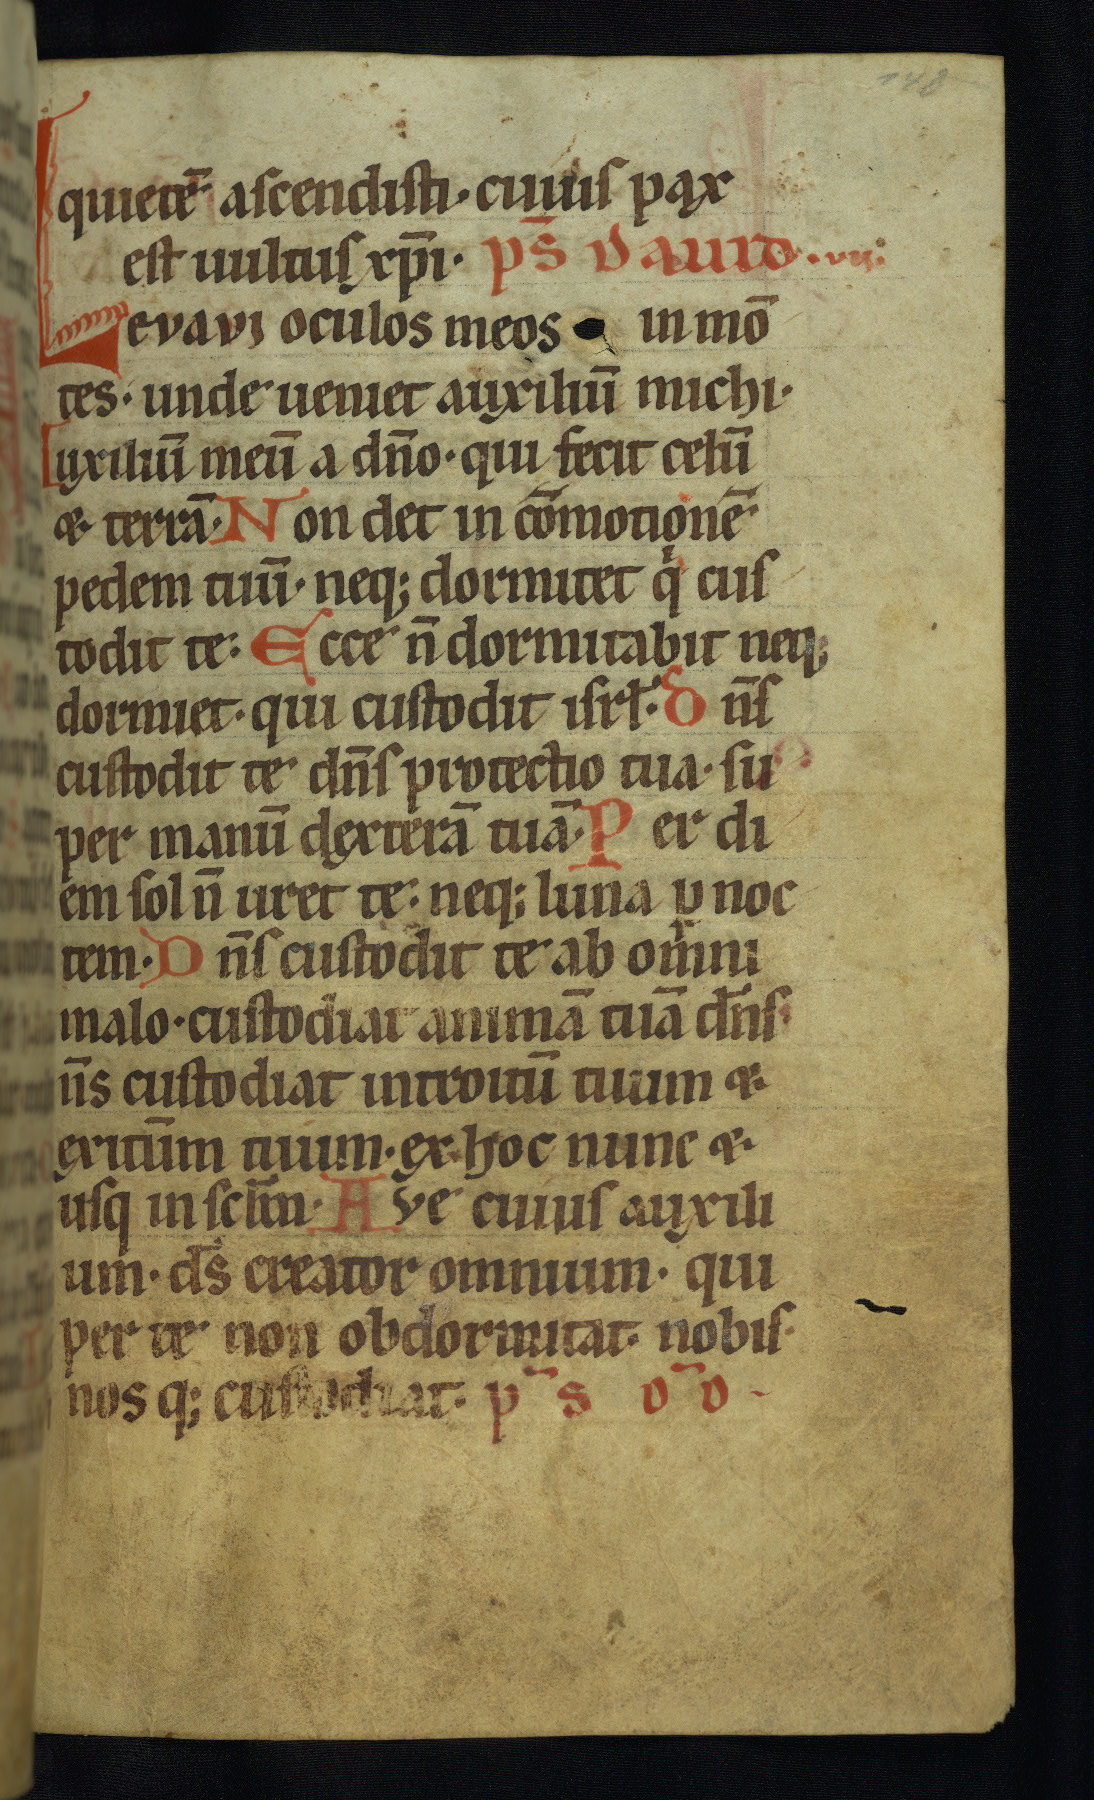 148
quietē ascendisti· cuius pax
est uultus xp̄i· ps̄ dauid·vii:
Levavi oculos meos in mō
tes· unde ueniet auxiliū michi·
uxiliū meū a dn̄o· qui fecit celū
& terrā· Non det in cōmotionē
pedem tuū· neq; dormitet q̇ cus
todit te: Ecce n̄ dormitabit neq;
dormiet· qui custodit isrl̄· D n̄s
custodit te dn̄s protectio tua· su
per manū dexterā tuā· Per di
em sol n̄ uret te: neq; luna p noc
tem· D n̄s custodit te ab om̄ni
malo· custodiat animā tuā dn̄s·
n̄s custodiat introitū tuum &·
exitūm tuum· ex hoc nunc &·
usq in scl̄m· Ave cuius auxili
um· ds̄ creator omnium· qui
per te non obdormitat· nobis·
nos q; custodiat· p̄s d̄d